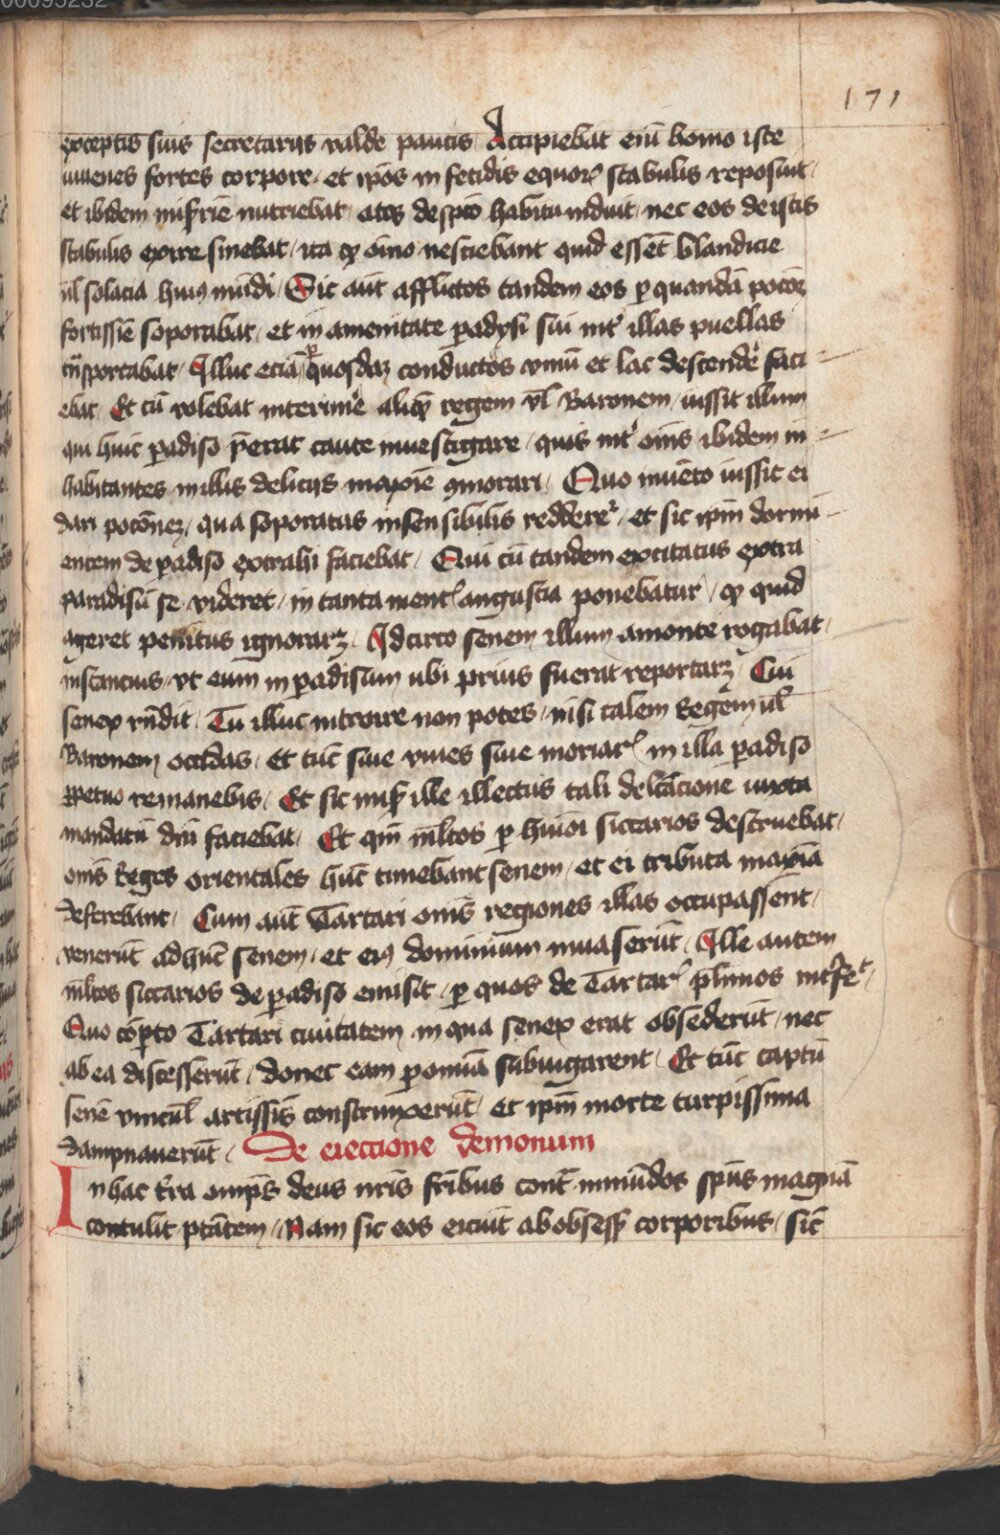 171
exceptis suis secretarijs valde paucis Accipiebat eni̅ homo iste
iuuenes fortes corpore et ip̅os in fetidis equoꝝ stabulis reposuit
et ibidem mis̅rie̅ nutriebat atqꝫ despc̅o habitu induit nec eos de istis
stabulis exire sinebat ita ꝙ oi̅no nesciebant quid esse̅t blandicie
ul̅ solacia huiꝰ mu̅di Sic aut̅ afflictos tandem eos ꝑ quanda̅ poco̅e̅
fortissi̅e soporabat et in amenitate ꝑadysi sui int̅ illas puellas
tn̅sportabat Illuc ecia̅ ꝑ quosdaꝫ conductos vinu̅ et lac descende̅ faci
ebat Et cu̅ volebat interime̅ aliqe̅ regem vl̅ Baronem iussit illum
qui huic ꝑadiso p̅erat caute inuestigare quis int̅ om̅s ibidem in
habitantes in illis delicijs maxi̅e ꝯmorari Quo inue̅to iussit ei
dari poco̅neꝫ qua soporatus insensibilis redderet̅ et sic ip̅m dormi
entem de ꝑadiso extrahi faciebat Qui cu̅ tandem excitatus extra
paradisu̅ se videret in tanta ment̅ angustia ponebatur ꝙ quid
ageret penitus ignorarꝫ Idcirco senem illum a monte rogabat
instancius vt eum in ꝑadisum ubi prius fuerat reportarꝫ Cui
senex rn̅dit Tu illuc introire non potes nisi talem Regem ul̅
Baronem occidas et tu̅c siue viues siue moriar̅ in illa ꝑadiso
ꝑpetuo remanebis Et sic mis̅ ille illectus tali delc̅acione iuxta
mandatu̅ dn̅i faciebat Et qm̅ ml̅tos ꝑ hui̅oi siccarios destruebat
om̅s Reges orientales hu̅c timebant senem et ei tributa maxi̅a
defferebant Cum aut̅ Tartari om̅s regiones illas occupasse̅t
veneru̅t ad hu̅c senem et eiꝰ dominium inuaseru̅t Ille autem
ml̅tos siccarios de ꝑadiso emisit ꝑ quos de Tartar̅ pl̅imos int̅fec̅
Quo co̅ꝑto Tartari ciuitatem in qua senex erat obsederu̅t nec
ab ea discesseru̅t donec eam ꝑ omi̅a subiugarent Et tu̅c captu̅
sene̅ vincul̅ artissi̅s constrinxeru̅t et ip̅m morte turpissima
dampnaueru̅t De eieccione demonum
In hac t̅ra omp̅s deus nr̅is fr̅ibus cont̅ inmu̅dos sp̅us magna̅
contulit pta̅tem Nam sic eos eiciu̅t ab obsess̅ corporibus sic̅